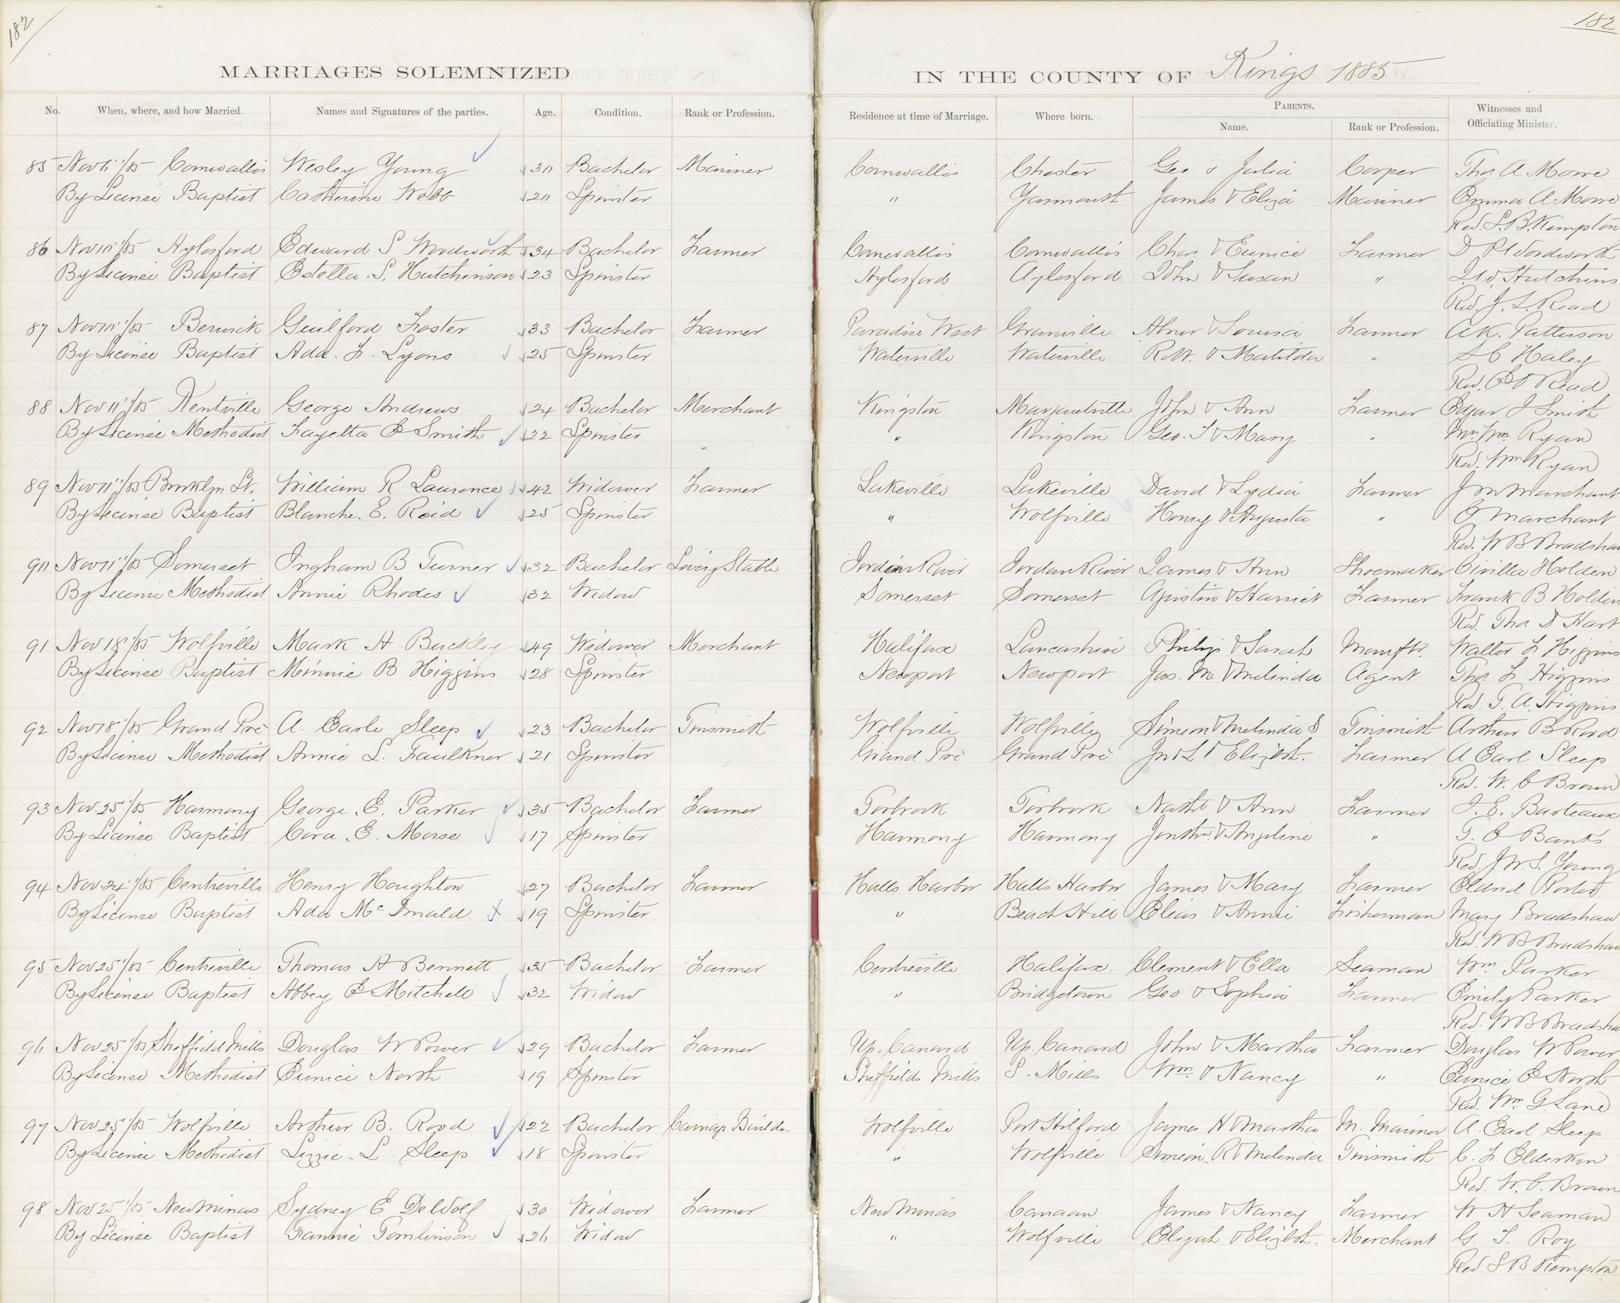 182
182
MARRIAGES SOLEMNIZED IN THE COUNTY OF Kings 1885
No. When, where, and how Married. Names and Signatures of the parties. Age. Condition. Rank or Profession. Residence at time of Marriage. Where born. PARENTS. Name. Rank or Profession. Witnesses and Officiating Minister.
85 Nov 6"/85 Cornwallis Wesley Young 30 Bachelor Mariner Cornwallis Chester Geo & Julia Cooper Thos A. Mowe
By License Baptist Catherine Webb 20 Spinster " Yarmouth James & Eliza Mariner Emma A. Mowe
Rev. S. B. Kempton
86 Nov 10"/85 Aylesford Edward S Woodworth 34 Bachelor Farmer Cornwallis Cornwallis Chas & Eunice Farmer D P Woodworth
By License Baptist Estella S. Hutchinson 23 Spinster Aylesford Aylesford John & Susan " Hutchins
Rev. J. L. Read
87 Nov 10"/85 Berwick Guilford Foster 33 Bachelor Farmer Paradise West Granville Abner & Louisa Farmer A K. Patterson
By License Baptist Ada. F. Lyons 25 Spinster Waterville Waterville R.W. & Matilda " Haley
Rev. Read
88 Nov 11"/85 Kentville George Andrews 24 Bachelor Merchant Kingston Margaretville John & Ann Farmer Edgar J Smith
By License Methodist Fayetta E Smith 22 Spinster " Kingston Geo. T & Mary " Mrs Wm Ryan
Rev. Wm Ryan
89 Nov 11"/85 Brooklyn St. William R Lawrence 42 Widower Farmer Lakeville Lakeville David & Lydia Farmer J M Marchant
By License Baptist Blanche. E. Reid 25 Spinster " Wolfville Henry & Augusta " Marchant
Rev. W B Bradshaw
90 Nov 11"/85 Somerset Ingham B Turner 32 Bachelor Livery Stable Jordan River Jordan River James & Ann Shoemaker Civilla Holden
By License Methodist Annie Rhodes 32 Widow Somerset Somerset Agustin & Harriet Farmer Frank B Holden
Rev. Thos D Hart
91 Nov 18"/85 Wolfville Mark H Buckley 49 Widower Merchant Halifax Lancashire Philip & Sarah Manftr. Walter F Higgins
By License Baptist Minnie B Higgins 28 Spinster Newport Newport Jas. M & Melinda Agent Thos L Higgins
Rev. T. A. Higgins
92 Nov 18"/85 Grand Pré A. Earle Sleep 23 Bachelor Tinsmith Wolfville Wolfville Simeon & Melinda S Tinsmith Arthur B Rood
By License Methodist Annie L. Faulkner 21 Spinster Grand Pré Grand Pré Jn L & Elizbt. Farmer A Earl Sleep
Rev. W. C Brown
93 Nov 25"/85 Harmony George. E. Parker 35 Bachelor Farmer Torbrook Torbrook Nathl & Ann Farmer J. E. Barteaux
By License Baptist Cora. E. Morse 17 Spinster Harmony Harmony Jonthn & Angeline " T. E Banks
Rev. J. W. S. Young
94 Nov 24"/85 Centreville Henry Houghton 27 Bachelor Farmer Halls Harbor Halls Harbor James & Mary Farmer Porter
By License Baptist Ada McDonald 19 Spinster " Beach Hill Elias & Annie Fisherman Mary Bradshaw
Rev. W B Bradshaw
95 Nov 25"/85 Centreville Thomas A Bennett 35 Bachelor Farmer Centreville Halifax Clement & Ella Seaman Wm Parker
By License Baptist Abbey E Mitchell 32 Widow " Bridgetown Geo & Sophia Farmer Emily Parker
Rev. W B Bradshaw
96 Nov 25"/85 Sheffield Mills Douglas W Power 29 Bachelor Farmer Up. Canard Up. Canard John & Martha Farmer Douglas W Power
By License Methodist Eunice North 19 Spinster Sheffields Mills S. Mills Wm & Nancy " Eunice E North
Rev. Wm G. Lane
97 Nov 25"/85 Wolfville Arthur B. Rood 22 Bachelor Carriage Builder Wolfville Port Hilford James H & Martha M. Mariner A. Earl Sleep
By License Methodist Lizzie. L. Sleep 18 Spinster " Wolfville Simeon. R & Melinda Tinsmith C. F. Elderkin
Rev. W. C. Brown
98 Nov 25"/85 New Minas Sydney E DeWolf 30 Widower Farmer New Minas Canaan James & Nancy Farmer W H Seaman
By License Baptist Fannie Tomlinson 26 Widow " Wolfville Elijah & Elizbt. Merchant G. T. Roy
Rev. S B Kempton